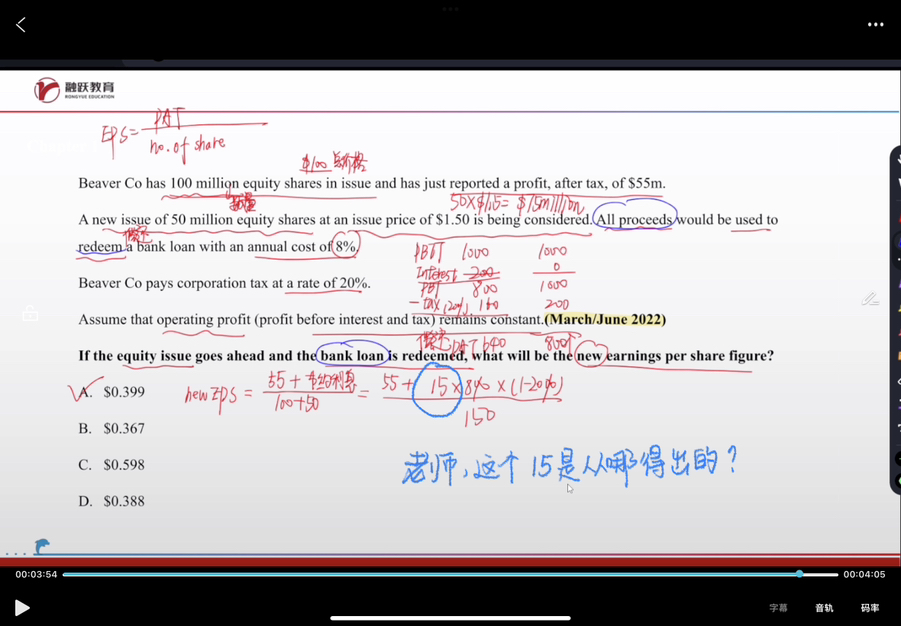 融跃教育
RONGYUE EDUCATION
EPS = PAT / no. of share
$100
Beaver Co has 100 million equity shares in issue and has just reported a profit, after tax, of $55m.
50×$1.5 = $75million
A new issue of 50 million equity shares at an issue price of $1.50 is being considered. All proceeds would be used to
偿还
redeem a bank loan with an annual cost of 8%.
PBIT 1000 1000
Interest 200 0
PBT 800 1000
Beaver Co pays corporation tax at a rate of 20%.
-tax (20%) 160 200
Assume that operating profit (profit before interest and tax) remains constant.(March/June 2022)
PAT 640 800
If the equity issue goes ahead and the bank loan is redeemed, what will be the new earnings per share figure?
A. $0.399
new EPS = 55 + 节约利息 / 100+50 = 55 + 15 × 8% × (1-20%) / 150
B. $0.367
老师，这个15是从哪得出的？
C. $0.598
D. $0.388
00:03:54
00:04:05
字幕 音轨 码率